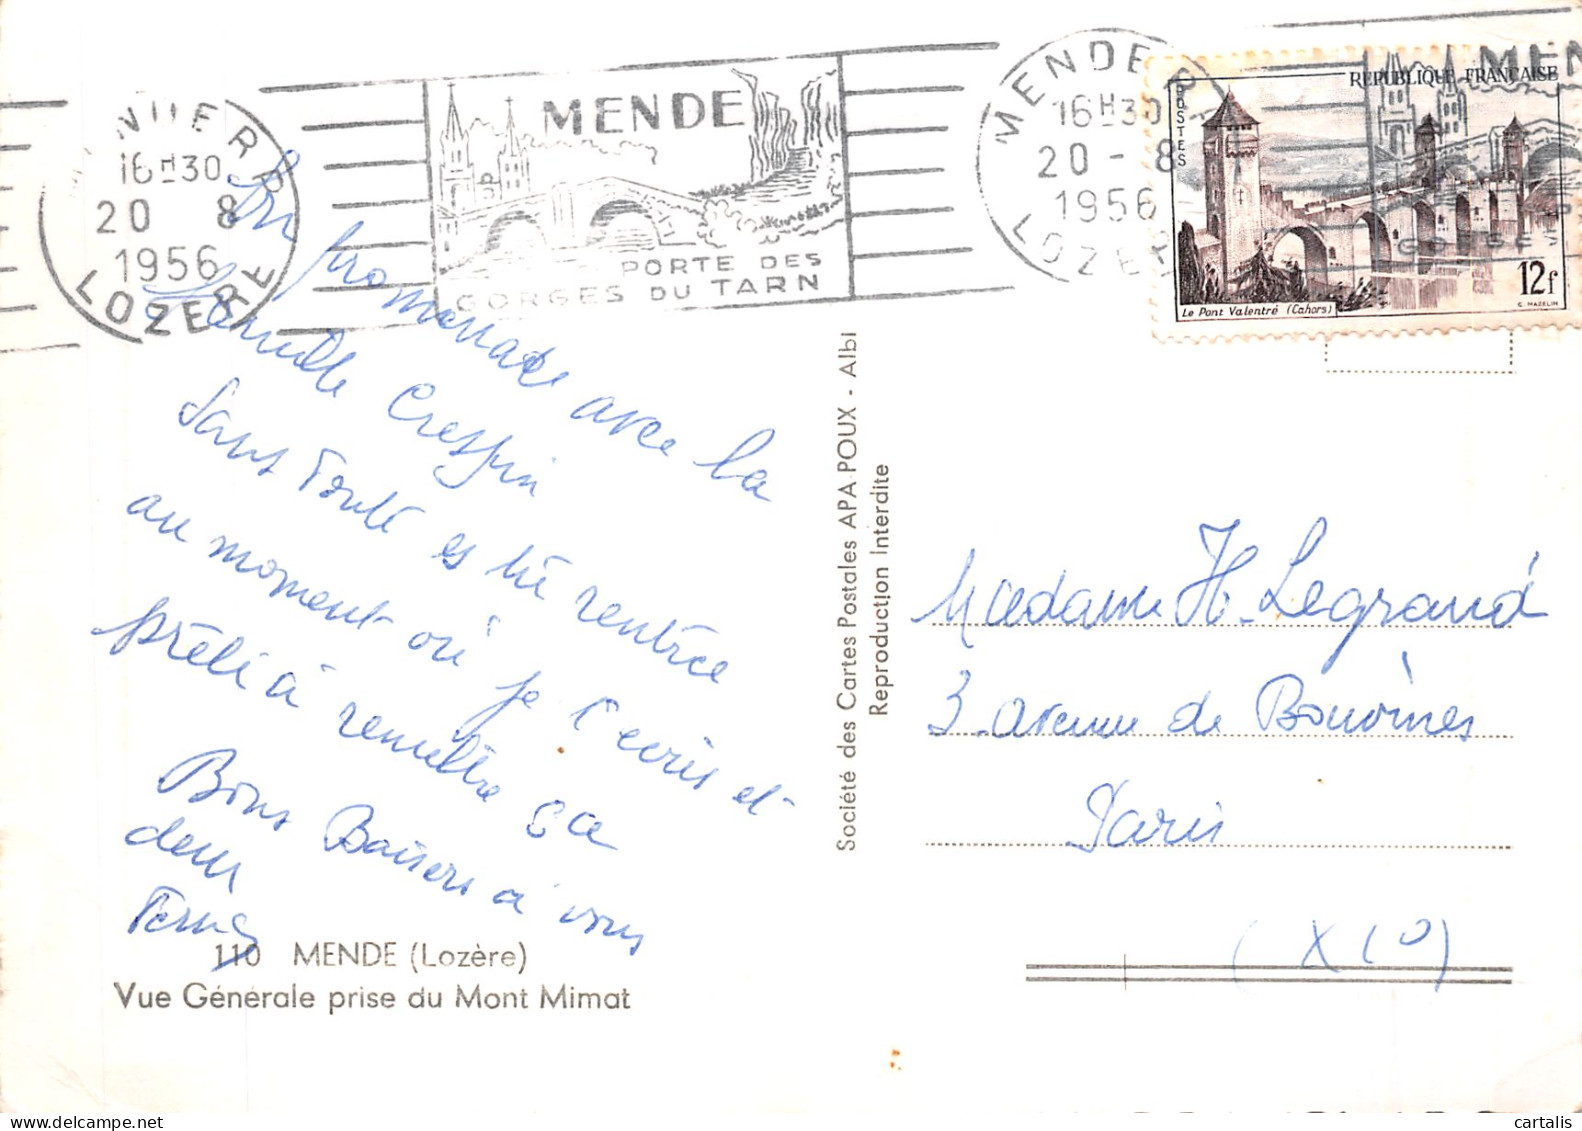 MENDE R.P.
16H30
20 - 8
1956
LOZERE
MENDE
PORTE DES
GORGES DU TARN
MENDE R.P.
16H30
20 - 8
1956
LOZERE
REPUBLIQUE FRANÇAISE
POSTES
12f
Le Pont Valentré (Cahors)
C. MAZELIN
promenade avec la
famille Crespin
au moment où je t'écris et
prête à remettre ça
Bons Baisers à vous
deux
110 MENDE (Lozère)
Vue Générale prise du Mont Mimat
Société des Cartes Postales APA.POUX - Albi
Reproduction Interdite
Madame H. Legrand
3 avenue de Bouvines
Paris
cartalis